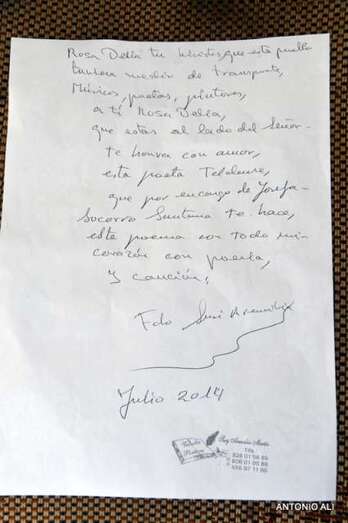 Rosa Delia tu hicistes, que este pueblo
tuviera medio de transporte,
Músicos, poetas, pintores,
a ti Rosa Delia,
que estas al lado del Señor
te honra con amor,
esta poeta Teldense,
que por encargo de Josefa
Socorro Santana te hace,
este poema con todo mi
corazón con poesía,
y canción,
Fdo Susi
Julio 2014
Tlfs.
ANTONIO ALI